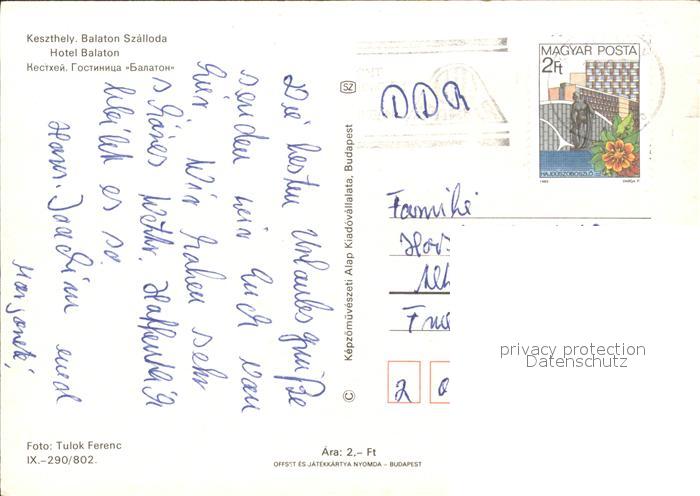 Keszthely. Balaton Szálloda
Hotel Balaton
Кестхей. Гостиница «Балатон»
Die besten Urlaubsgrüße
senden wir Euch von
hier. Wir haben sehr
schönes Wettr. Hoffentlich
bleibt es so.
Hans-Joachim und
Foto: Tulok Ferenc
IX.–290/802.
SZ
Képzőművészeti Alap Kiadóvállalata, Budapest
©
Ára: 2,– Ft
OFFSET ÉS JÁTÉKKÁRTYA NYOMDA – BUDAPEST
DDR
MAGYAR POSTA
2Ft
HAJDÚSZOBOSZLÓ
Familie
2 0
privacy protection
Datenschutz